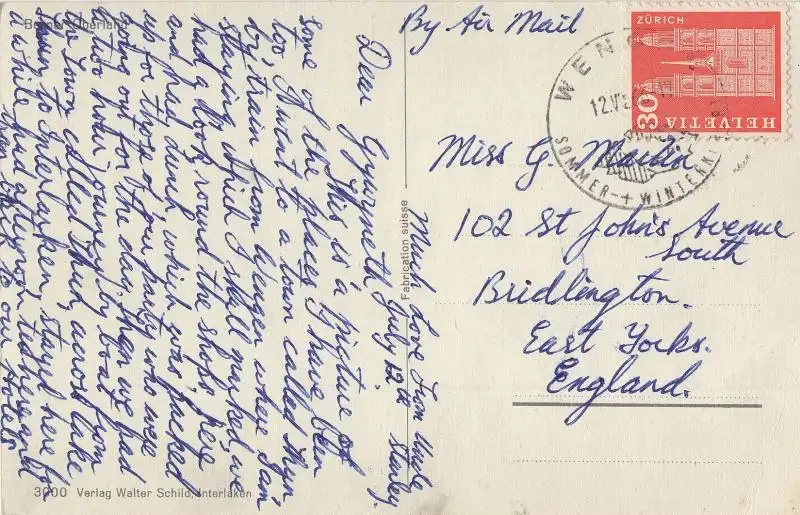 Berner Oberland
Dear Gwynneth July 12th
This is a picture of
some of the places I have been
too, I went to a town called Thun
by train from Wengen where I am
staying which I shall marked, we
had a look round the shops here
and had lunch which was packed
up for those of our party who were
going out for the day, then we had
a two hour journey by boat from
the town called Thun, across lake
to Interlaken, stayed here for
a while had afternoon tea here and
then back to our Hotels
Much Love From Uncle
Stanley.
Fabrication suisse
3000 Verlag Walter Schild, Interlaken
By Air Mail
ZÜRICH
30
HELVETIA
WENG
12.VII
SOMMER- + WINTERK
Miss G.
102 St John's Avenue
South
Bridlington.
East Yorks.
England.